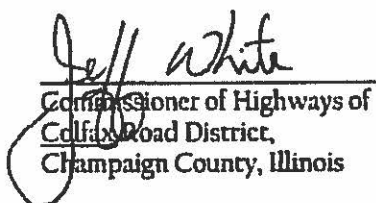 Jeff White
Commissioner of Highways of
Colfax Road District,
Champaign County, Illinois